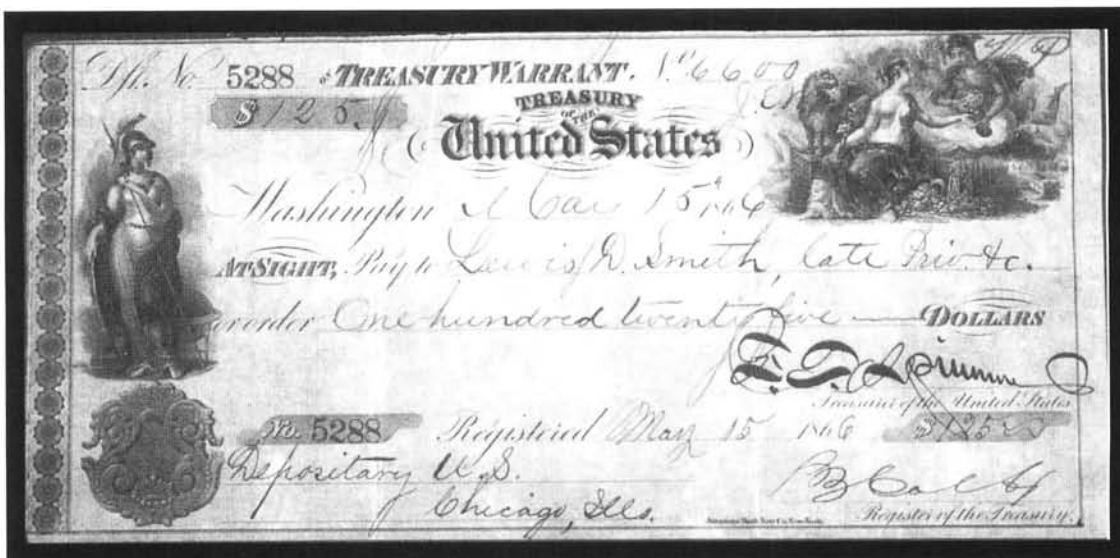 Dft. No. 5288 on TREASURY WARRANT. No. 6600
$125
TREASURY
OF THE
United States
Washington May 15th 1866
AT SIGHT, Pay to Lewis D. Smith, late Priv. &c.
or order One hundred twenty five DOLLARS
F. E. Spinner
Treasurer of the United States
No. 5288 Registered May 15 1866 $125
Depositary U.S.
Chicago, Ills.
S. B. Colby
Register of the Treasury.
American Bank Note Co. New York.